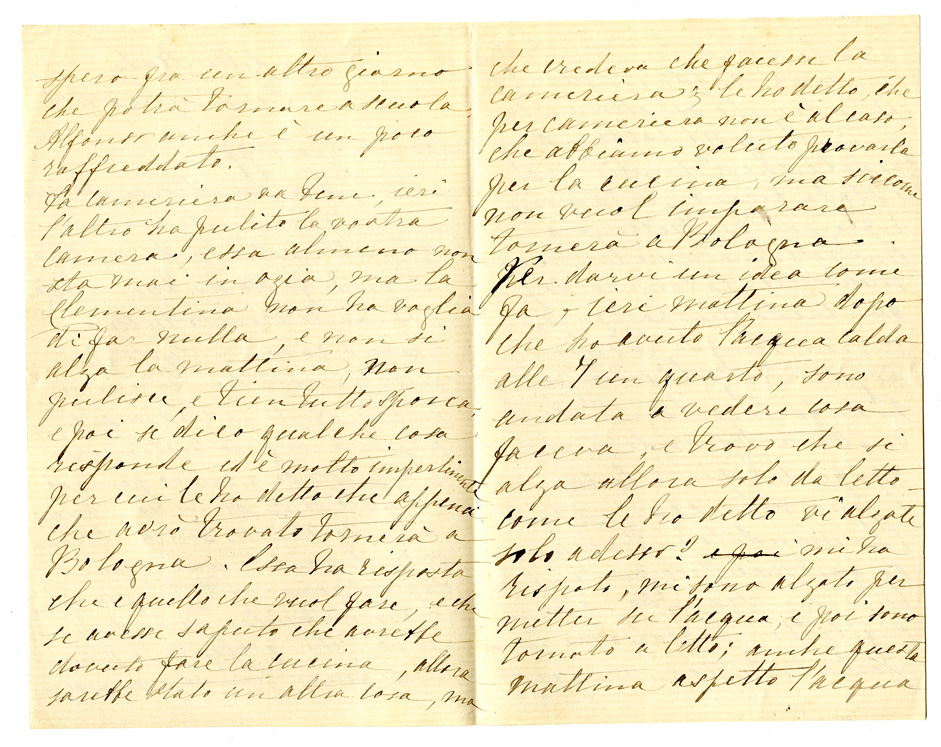 spero fra un altro giorno
che potrà tornare a scuola,
Alfonso anche è un poco
raffreddato.
La cameriera va bene, ieri
l'altro ha pulito la vostra
camera, essa almeno non
sta mai in ozia, ma la
Clementina non ha voglia
di far nulla, e non si
alza la mattina, non
pulisce, e tien tutto sporca,
e poi se dico qualche cosa
risponde ed è molto impertinente
per cui le ho detto che appena
che avrò trovato tornerà a
Bologna. Essa ha risposta
che e quello che vuol fare, e che
se avesse saputo che avrebbe
dovuto fare la cucina, allora
sarebbe stato un altra cosa, ma
che credeva che facesse la
cameriera; le ho detto, che
per cameriera non è al caso,
che abbiamo voluto provarla
per la cucina, ma siccome
non vuol imparare
tornerà a Bologna.
Per darvi un idea come
fa, ieri mattina dopo
che ho avuto l'acqua calda
alle 7 un quarto, sono
andata a vedere cosa
faceva, e trovo che si
alza allora solo da letto
come le ho detto vi alzate
solo adesso? e poi mi ha
risposto, mi sono alzato per
metter su l'acqua, e poi sono
tornato a letto; anche questa
mattina aspetto l'acqua